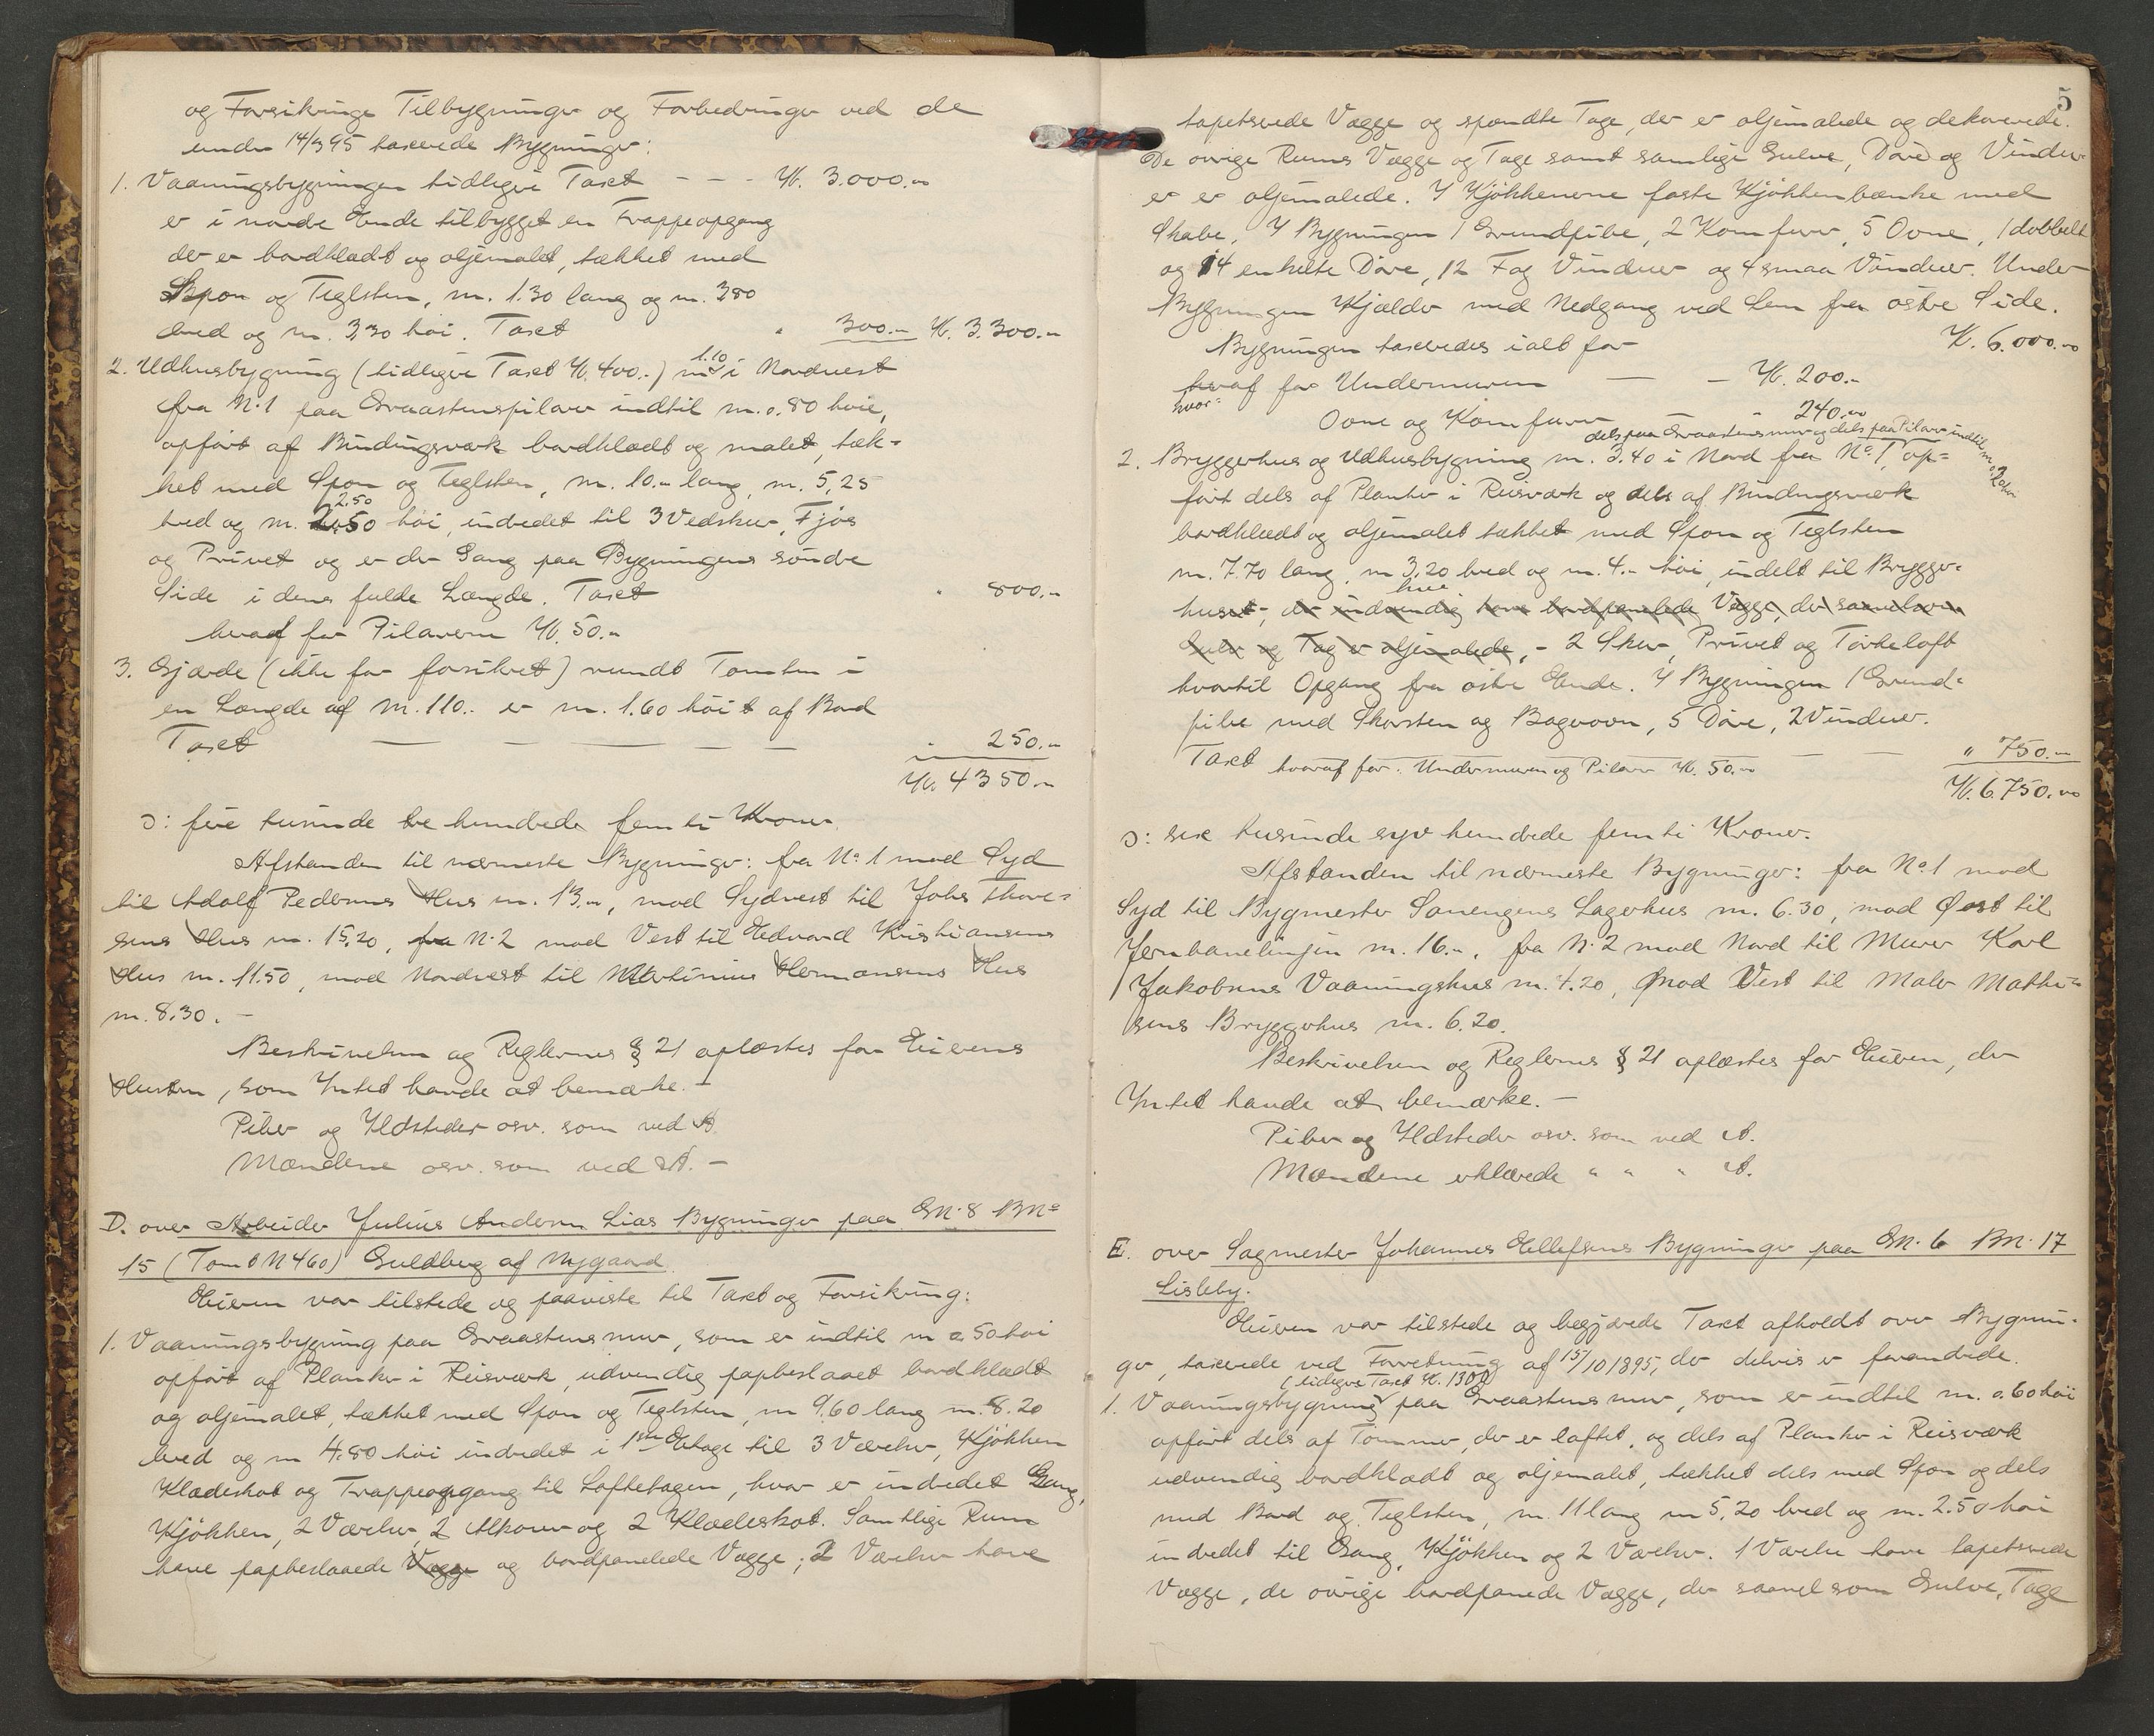 og Forsikringe Tilbygninger og Forbedringer ved de
under 14/3 95 taxerede Bygninger:
1. Vaaningsbygningen tidligere Taxt - - - Kr. 3.000.00
er i nordre Ende tilbygget en Trappeopgang
der er bordklædt og oljemalet, tækket med
Spon og Teglsten, m. 1.30 lang og m. 380
bred og m. 3,30 høi. Taxt " 300.- Kr. 3.300.-
2. Udhusbygning (tidligere Taxt Kr. 400.-) m 1.10 i Nordvest
fra N. 1 paa Graastenspilarer indtil m. 0.80 høie,
opført af Bindingsværk bordklædt og malet, tæk-
ket med Spon og Teglsten, m. 10.- lang, m. 5,25
bred og m. 2.50 høi, indredet til 3 Vedskur, Fjøs
og Privet og er der Gang paa Bygningens søndre
Side i dens fulde Længde. Taxt " 800.-
hvoraf for Pilarerne Kr. 50.-
3. Gjærde (ikke før forsikret) rundt Tomten i
en Længde af m. 110.- er m. 1.60 høit af Bord
Taxt — — — — — " 250.-
Kr. 4350.-
ɔ: fire tusinde tre hundrede femti Kroner.
Afstanden til nærmeste Bygninger: fra No 1 mod Syd
til Adolf Pedersens Hus m. 13.-, mod Sydvest til Johs Thore-
sens Hus m. 15,20, fra N. 2 mod Vest til Edvard Kristiansens
Hus m. 11.50, mod Nordvest til Martinius Hermansens Hus
m. 8.30. -
Beskrivelsen og Reglernes § 21 oplæstes for Eierens
Hustru, som Intet havde at bemærke. -
Piber og Ildsteder osv. som ved A.
Mændene osv. som ved A. -
D. over Arbeider Julius Andersen Lias Bygninger paa GN. 8 BNo
15 (Tomt N 460) Guldberg af Nygaard
Eieren var tilstede og paaviste til Taxt og Forsikring:
1. Vaaningsbygning paa Graastensmur, som er indtil m 0.50 høi
opført af Planker i Reisværk, udvendig papbeslaaet bordklædt
og oljemalet, tækket med Spon og Teglsten, m 9.60 lang m. 8.20
bred og m 4.80 høi indredet i 1ste Etage til 3 Værelser, Kjøkken
Klædeskot og Trappeopgang til Loftetagen, hvor er indredet Gang,
Kjøkken, 2 Værelser, 2 Alkover og 2 Klædeskot. Samtlige Rum
have papbeslaaede Vægge og bordpanelede Vægge; 2 Værelser have
5
tapetserede Vægge og spændte Tage, der er oljemalede og dekorerede.
De øvrige Rums Vægge og Tage samt samtlige Gulve, Døre og Vindu-
er er oljemalede. I Kjøkkenerne faste Kjøkkenbænke med
Skabe. I Bygningen 1 Grundpibe, 2 Komfurer, 5 Ovne, 1 dobbelt
og 14 enkelte Døre, 12 Fag Vinduer og 4 smaa Vinduer. Under
Bygningen Kjælder med Nedgang ved Lem fra østre Side.
Bygningen taxeredes ialt for Kr. 6.000.00
hvoraf for Undermuren — — Kr. 200.-
hvor-
Ovne og Komfurer 240.00
dels paa Graastensmur og dels paa Pilarer indtil m 0.20 høi
2. Bryggerhus og Udhusbygning m. 3.40 i Nord fra No 1, op-
ført dels af Planker i Reisværk og dels af Bindingsværk
bordklædt og oljemalet tækket med Spon og Teglsten
m. 7.70 lang, m 3.20 bred og m. 4.- høi, indelt til Brygger-
hus
huset, der indvendig have bordpanelede Vægge, der saavelsom
Gulv og Tag er oljemalede, - 2 Skur, Privet og Tørkeloft
hvortil Opgang fra østre Ende. I Bygningen 1 Grund-
pibe med Skorsten og Bagerovn, 5 Døre, 2 Vinduer.
Taxt hvoraf for Undermuren og Pilarer Kr. 50.- — — " 750.-
Kr. 6.750.00
ɔ: sex tusinde syv hundrede femti Kroner.
Afstanden til nærmeste Bygninger: fra No 1 mod
Syd til Bygmester Sørengens Lagerhus m. 6.30, mod Øst til
Jernbanelinjen m. 16.-, fra N. 2 mod Nord til Murer Karl
Jakobsens Vaaningshus m. 4.20, mod Vest til Maler Mathi-
sens Bryggerhus m. 6.20.
Beskrivelsen og Reglernes § 21 oplæstes for Eieren, der
Intet havde at bemærke. -
Piber og Ildsteder osv. som ved A.
Mændene erklærede " " " A.
E. over Sagmester Johannes Ellefsens Bygninger paa GN. 6 BN. 17
Lisleby.
Eieren var tilstede og begjærede Taxt afholdt over Bygnin-
ger, taxerede ved Forretning af 15/10 1895, der delvis er forandrede.
(tidligere Taxt Kr. 1300)
1. Vaaningsbygning paa Graastensmur, som er indtil m. 0.60 høi
opført dels af Tømmer, der er laftet, og dels af Planker i Reisværk
udvendig bordklædt og oljemalet, tækket dels med Spon og dels
med Bord og Teglsten, m. 11 lang m 5.20 bred og m. 2.50 høi
indredet til Gang, Kjøkken og 2 Værelser. 1 Værelse have tapetserede
Vægge, de øvrige bordpanede Vægge, der saavelsom Gulve, Tage